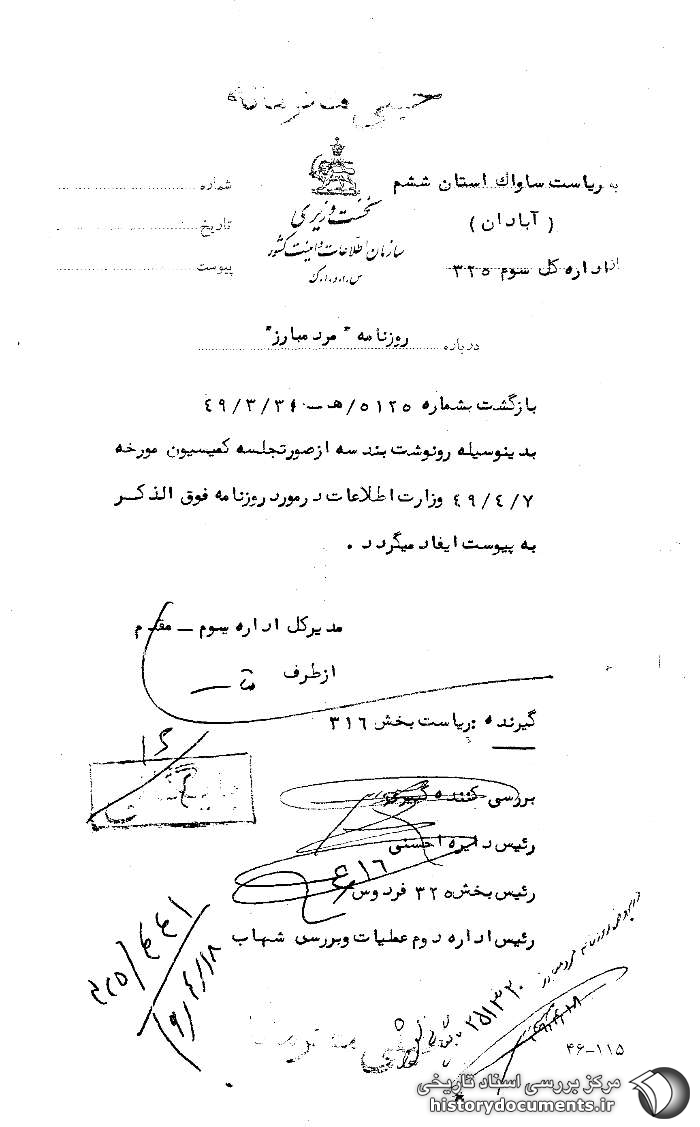 خیلی محرمانه
به ریاست ساواك استان ششم
(آبادان)
از اداره کل سوم ۳۲۵
نخست وزیری
سازمان اطلاعات و امنیت کشور
س.ا.و.ا.ک
شماره
تاریخ
پیوست
درباره روزنامه "مرد مبارز"
بازگشت بشماره ۵۱۲۵/هـ – ۴۹/۳/۳۱
بدینوسیله رونوشت بند سه ازصورتجلسه کمیسیون مورخه
۴۹/۴/۷ وزارت اطلاعات درمورد روزنامه فوق الذکر
به پیوست ایفاد میگردد .
مدیرکل اداره سوم – مقدم
ازطرف
گیرنده : ریاست بخش ۳۱۶
بررسی کننده
رئیس دایره احسنی
رئیس بخش ۳۲۵ فردوس
۱۶/ع
رئیس اداره دوم عملیات وبررسی شهاب
۹/۴/۱۸
۲۵۱۳۲۰
خیلی محرمانه
۴۶-۱۱۵
مرکز بررسی اسناد تاریخی
historydocuments.ir